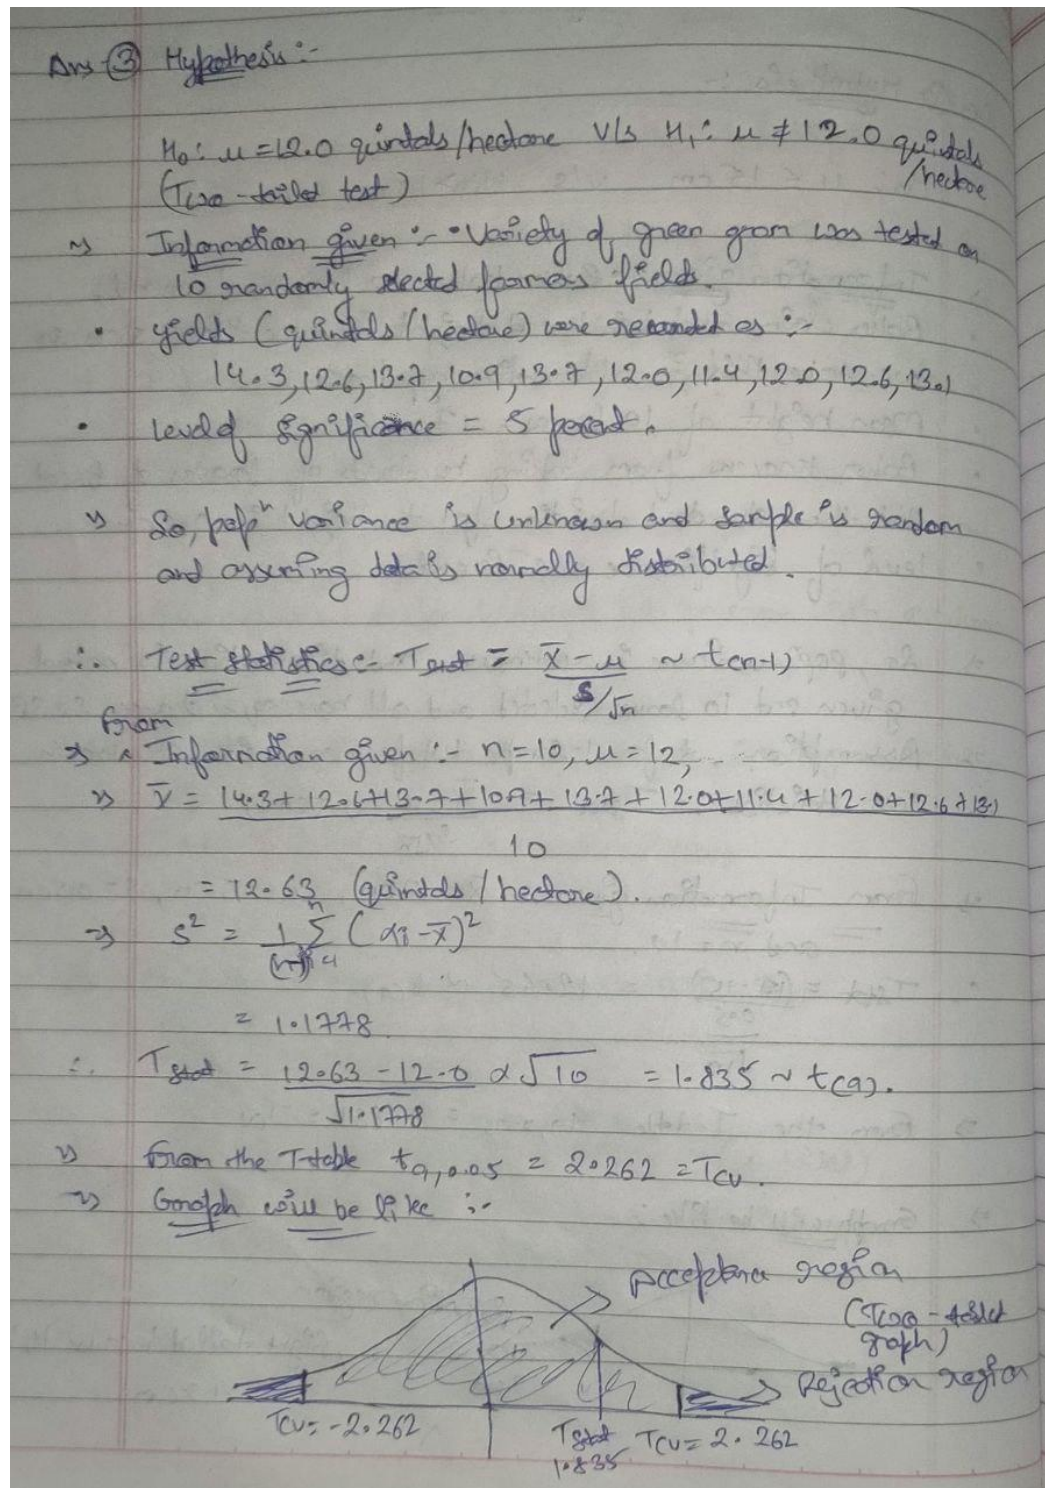 Ans ③ Hypothesis :-
H₀ : μ = 12.0 quintals/hectare V/s H₁ : μ ≠ 12.0 quintals
/hectare
(Two-tailed test)
Information given :- • Variety of green gram was tested on
10 randomly selected farmers fields.
• yields (quintals/hectare) were recorded as :-
14.3, 12.6, 13.7, 10.9, 13.7, 12.0, 11.4, 12.0, 12.6, 13.1
• level of significance = 5 percent.
So, popⁿ variance is unknown and sample is random
and assuming data is normally distributed.
∴ Test statistics :- Tstat = x̄ - μ ~ t(n-1)
s/√n
from
⇒ Information given :- n=10, μ=12,
x̄ = 14.3+12.6+13.7+10.9+13.7+12.0+11.4+12.0+12.6+13.1
10
= 12.63 (quintals/hectare).
⇒ s² = 1/(n-1) Σ (xi - x̄)²
= 1.1778
∴ Tstat = 12.63 - 12.0 × √10 = 1.835 ~ t(9).
√1.1778
from the T-table t9,0.05 = 2.262 = Tcv.
⇒ Graph will be like :-
Acceptance region
(Two-tailed
graph)
Rejection region
Tcv = -2.262
Tstat Tcv = 2.262
1.835